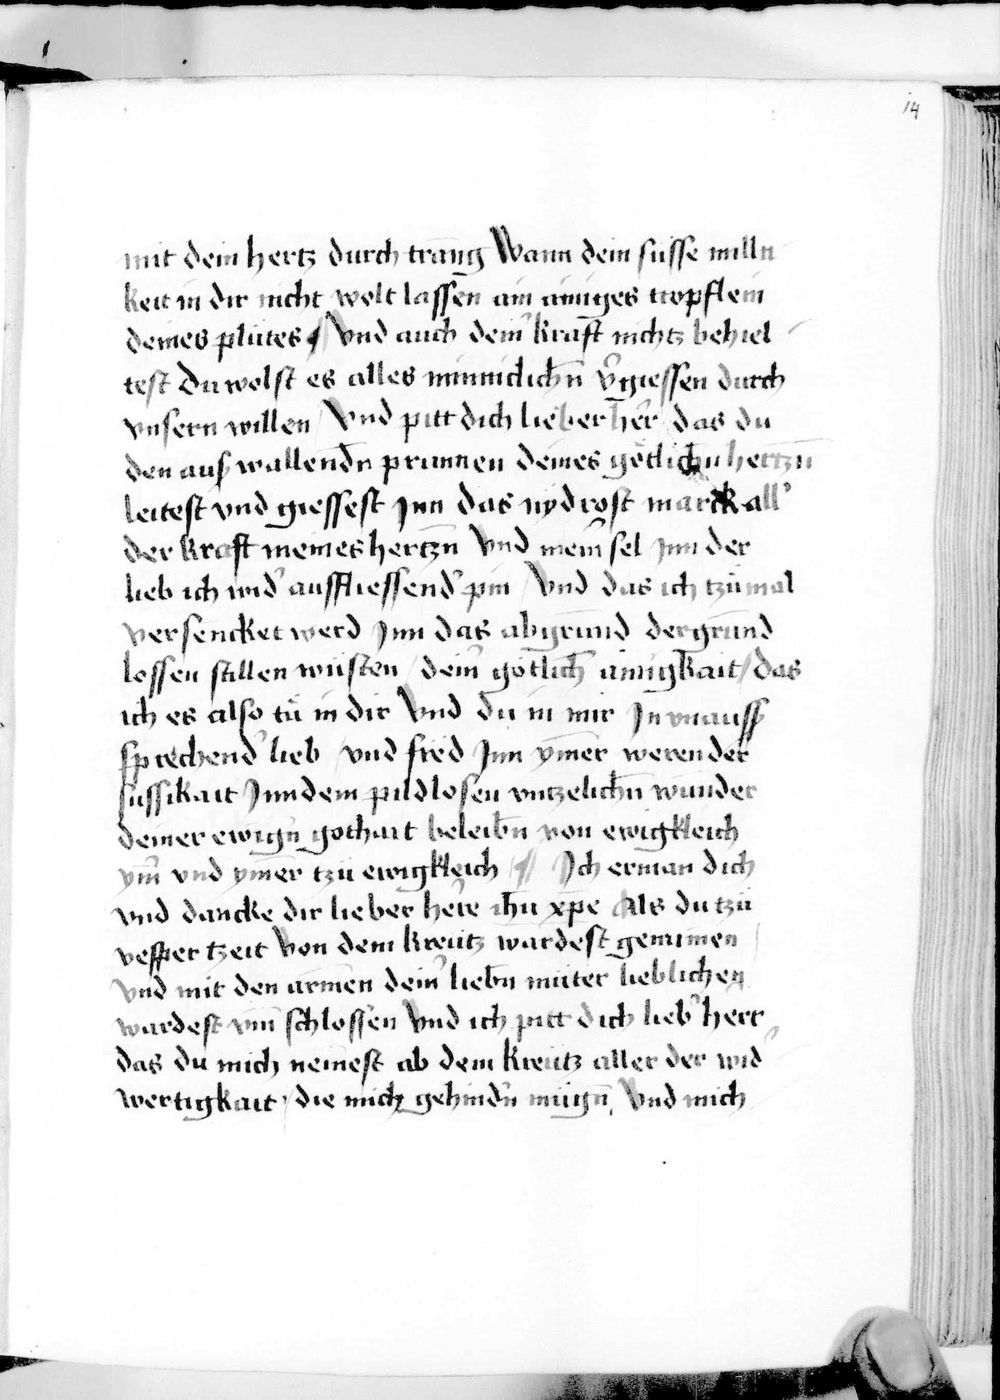 14
mit dein hertz durch trang Wann dein süsse milln
keit in dir nicht wolt lassen ain ainiges tropflein
deines plütes Vnd auch dein' kraft nichtz behiel
test Du wolst es alles minniclich̄n v'giessen durch
vnsern willen / Vnd pitt dich lieber her̄ / das du
den auß wallend̄n prunnen deines götlich̄n hertzn̄
leitest vnd giessest Jnn das nydrost marck all'
der kraft meines hertzn̄ Vnd mein' sel Jnn der
lieb ich wid' ausfliessend' pin / Vnd das ich tzümal
versencket werd Jnn das abgrund der grund
lossen stillen wüsten / dein' götlich̄ ainigkait / das
ich es also tü in dir Vnd du in mir Jn vnauss
sprechend' lieb / vnd fred Jnn ym̄er werender
süssikait Jnn dem pildlosen vntzelich̄n wunder
deiner ewign̄ gothait beleib̄n von ewigkleich
ym̄ vnd ym̄er tzü ewigkleich ¶ Ich erman dich
vnd dancke dir lieber here ih̄u xp̄e Als du tzü
vesper tzeit Von dem kreütz wardest genumen
vnd mit den armen dein' lieb̄n müter lieblichen
wardest vm̄ schlossen Vnd ich pitt dich lieb' herr
das du mich nemest ab dem kreütz aller der wid'
wertigkait / die mich gehind'n mügn̄, Vnd mich